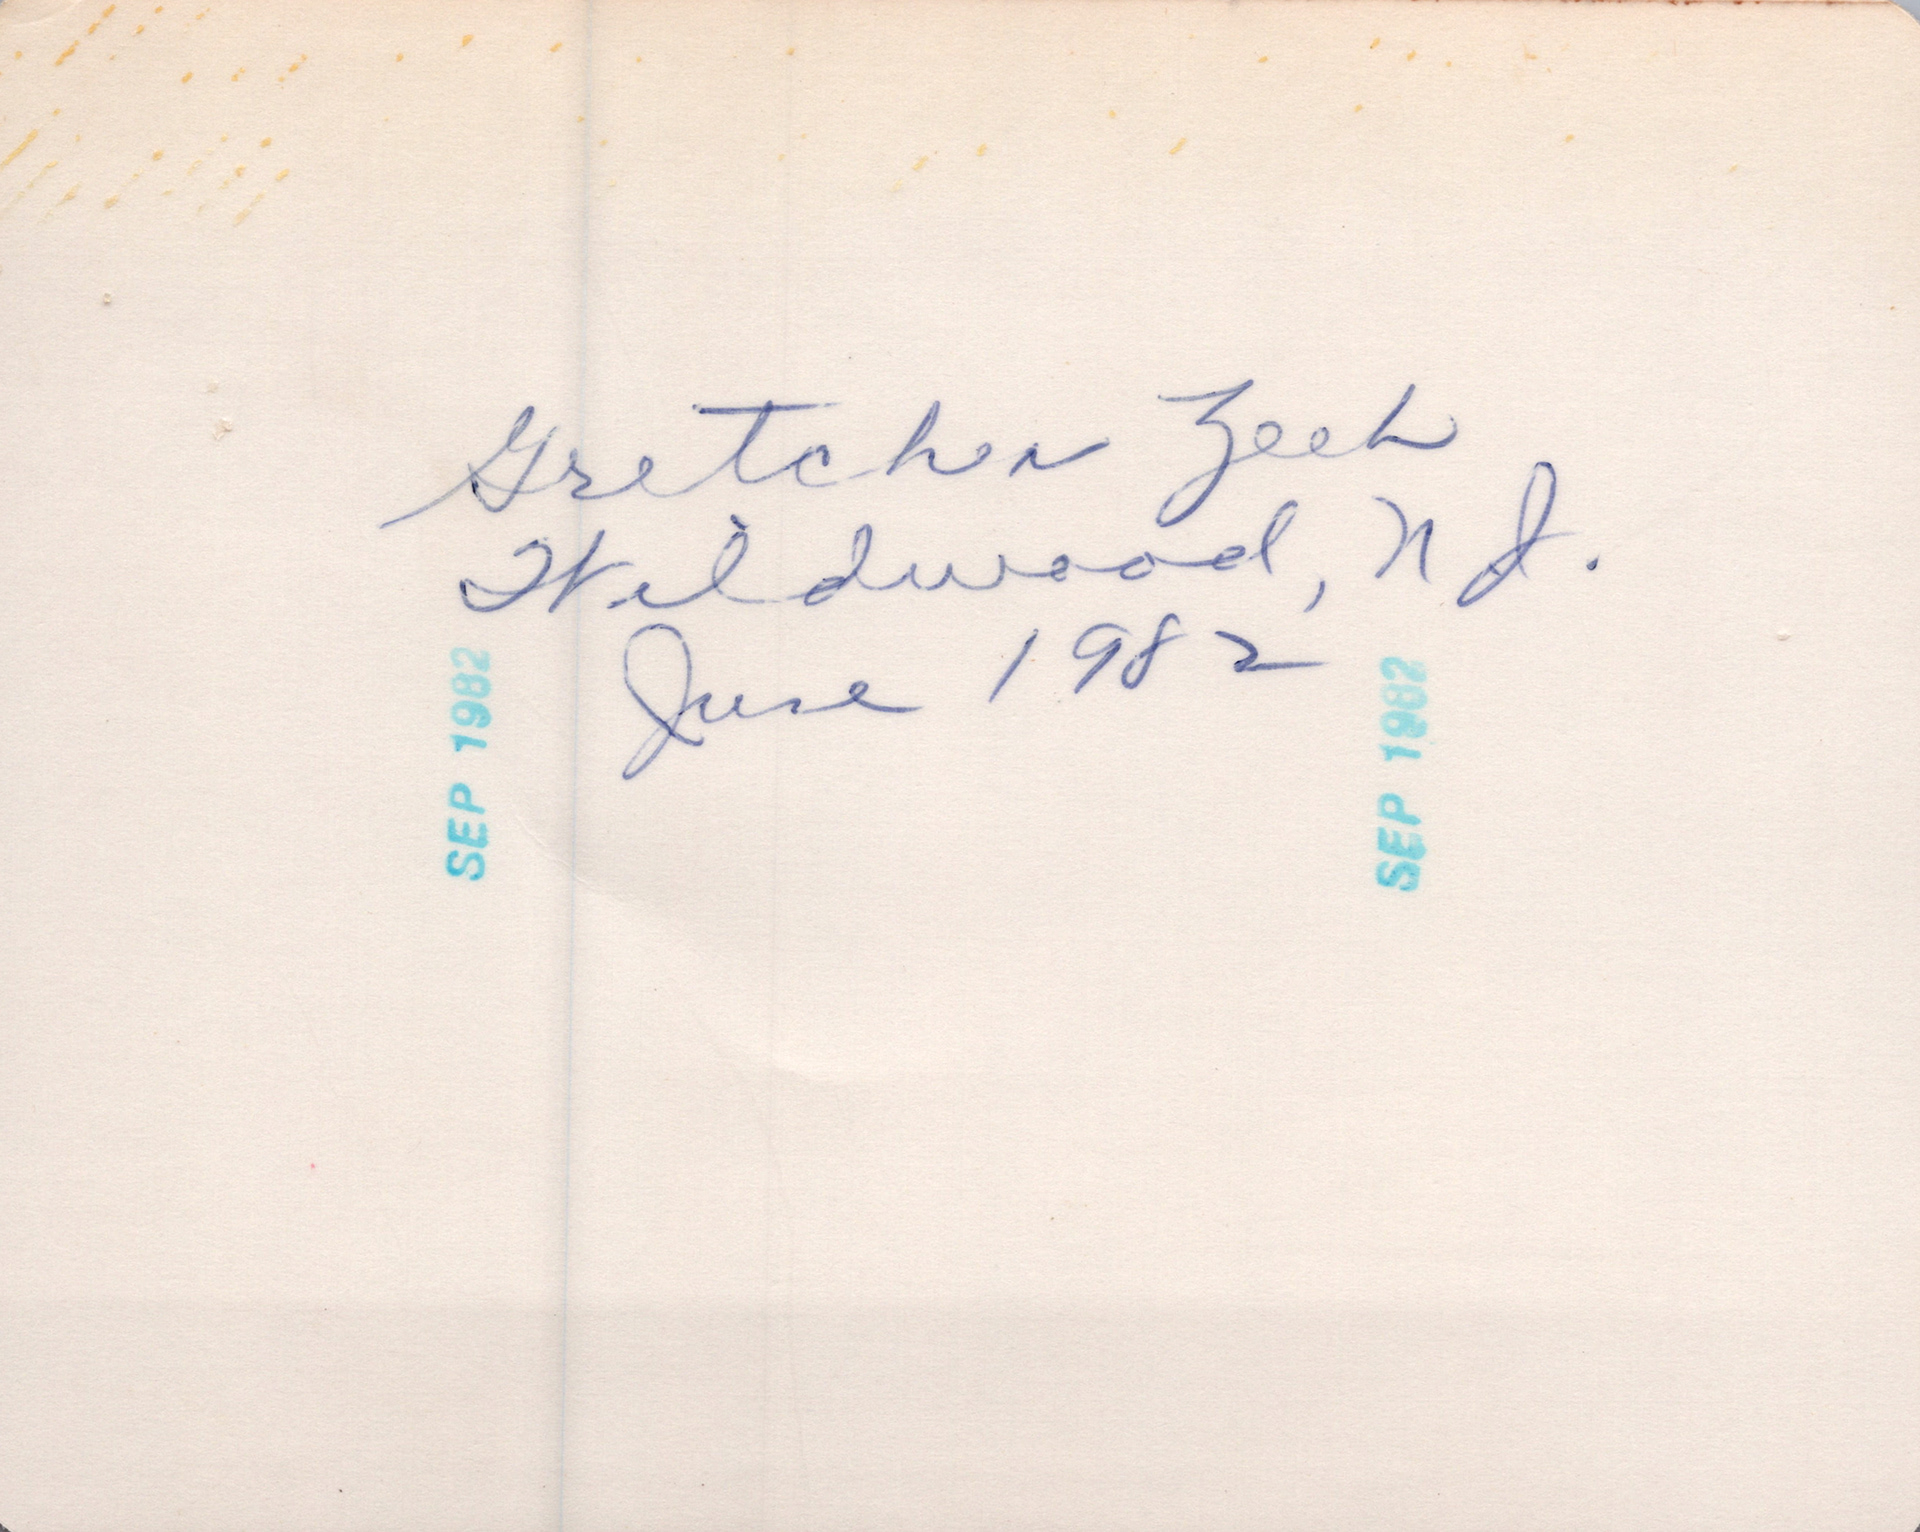 Gretchen Zech
Wildwood, N J.
June 1982
SEP 1982
SEP 1982